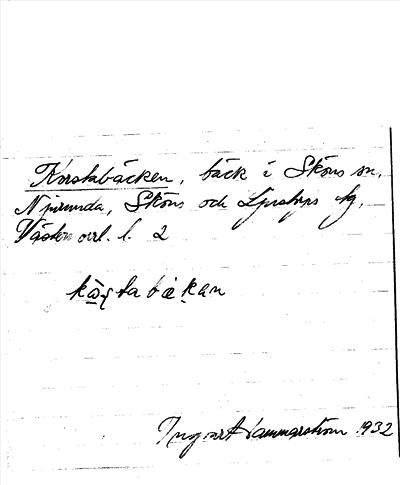 Korstabäcken, bäck i Sköns sn,
Njurunda, Sköns och Ljustorps tg,
Västernorrl. l. 2
kå̱ʂtabäkan
Ingvart Hammarström 1932